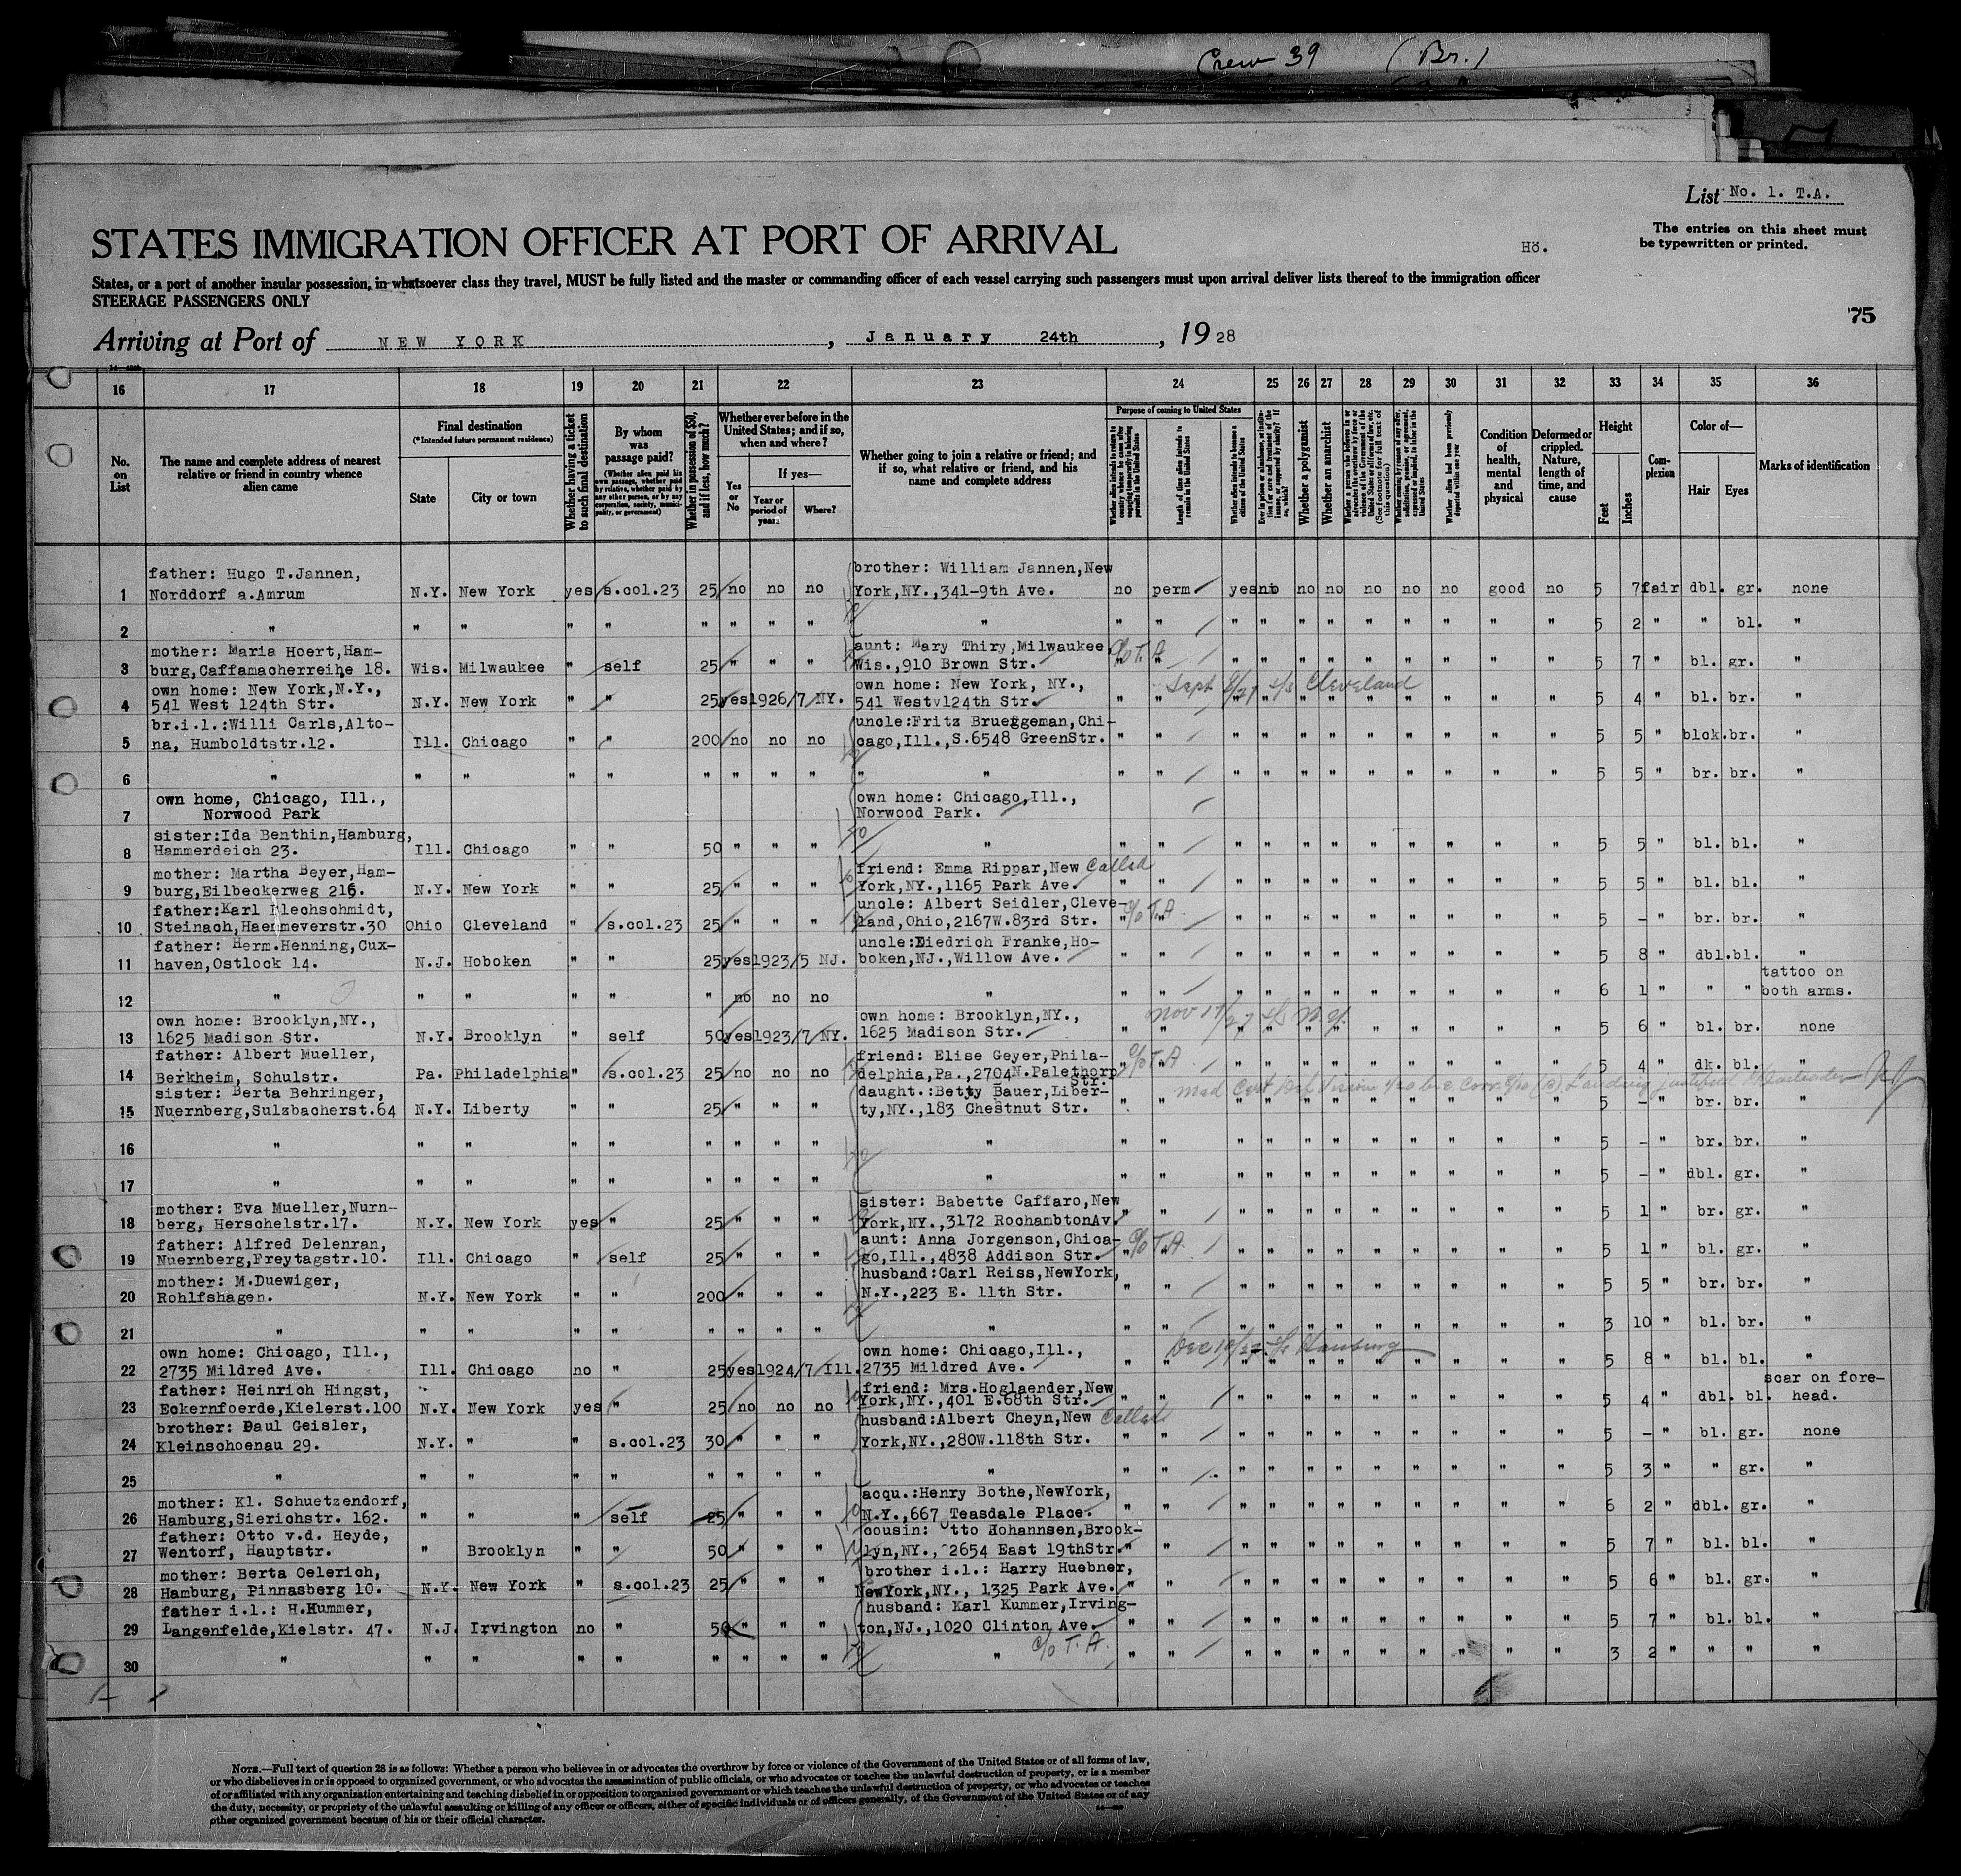 Crew 39 (Br.)
List No. 1. T.A.
STATES IMMIGRATION OFFICER AT PORT OF ARRIVAL
Hö.
The entries on this sheet must
be typewritten or printed.
States, or a port of another insular possession, in whatsoever class they travel, MUST be fully listed and the master or commanding officer of each vessel carrying such passengers must upon arrival deliver lists thereof to the immigration officer
STEERAGE PASSENGERS ONLY
75
Arriving at Port of NEW YORK, January 24th, 1928
16 17 18 19 20 21 22 23 24 25 26 27 28 29 30 31 32 33 34 35 36
No. on List
The name and complete address of nearest relative or friend in country whence alien came
Final destination
(*Intended future permanent residence)
State
City or town
Whether having a ticket to such final destination
By whom was passage paid?
(Whether alien paid his own passage, whether paid by relative, whether paid by any other person, or by any corporation, society, municipality, or government)
Whether in possession of $50, and if less, how much?
Whether ever before in the United States; and if so, when and where?
Yes or No
If yes—
Year or period of years
Where?
Whether going to join a relative or friend; and if so, what relative or friend, and his name and complete address
Purpose of coming to United States
Length of time alien intends to remain in the United States
Whether alien intends to become a citizen of the United States
Whether a polygamist
Whether an anarchist
Whether alien had been previously deported within one year
Condition of health, mental and physical
Deformed or crippled. Nature, length of time, and cause
Height
Feet
Inches
Complexion
Color of—
Hair
Eyes
Marks of identification
father: Hugo T.Jannen, brother: William Jannen,New
1 Norddorf a.Amrum N.Y. New York yes s.col.23 25 no no no York,NY.,341-9th Ave. no perm yes no no no no no no good no 5 7 fair dbl. gr. none
2 " " " " " " " " " " " " " " " " " " " " " 5 2 " " bl. "
mother: Maria Hoert,Ham- aunt: Mary Thiry,Milwaukee c/o T.A
3 burg,Caffamacherreihe 18. Wis. Milwaukee " self 25 " " " Wis.,910 Brown Str. " " " " " " " " " " " 5 7 " bl. gr. "
own home: New York,N.Y., own home: New York, NY., Sept 8/27 s/s Cleveland
4 541 West 124th Str. N.Y. New York " " 25 yes 1926/7 NY. 541 West 124th Str. " " " " " " " " " " " 5 4 " bl. br. "
br.i.l.:Willi Carls,Alto- uncle:Fritz Brueggeman,Chi-
5 na, Humboldtstr.12. Ill. Chicago " " 200 no no no cago,Ill.,S.6548 GreenStr. " " " " " " " " " " " 5 5 " blck. br. "
6 " " " " " " " " " " " " " " " " " " " " " 5 5 " br. br. "
own home, Chicago, Ill., own home: Chicago,Ill.,
7 Norwood Park Norwood Park.
sister:Ida Benthin,Hamburg,
8 Hammerdeich 23. Ill. Chicago " " 50 " " " " " " " " " " " " " " " 5 5 " bl. bl. "
mother: Martha Beyer,Ham- friend: Emma Rippar,New Called
9 burg,Eilbeckerweg 216. N.Y. New York " " 25 " " " York,NY.,1165 Park Ave. " " " " " " " " " " " 5 5 " bl. bl. "
father:Karl Blechschmidt, uncle: Albert Seidler,Cleve- c/o T.A
10 Steinach,Haermeverstr.30 Ohio Cleveland " s.col.23 25 " " " land,Ohio,2167W.83rd Str. " " " " " " " " " " " 5 - " br. br. "
father: Herm.Henning,Cux- uncle:Diedrich Franke,Ho-
11 haven,Ostlock 14. N.J. Hoboken " " 25 yes 1923/5 NJ. boken,NJ.,Willow Ave. " " " " " " " " " " " 5 8 " dbl. bl. "
tattoo on
12 " " " " " " no no no " " " " " " " " " " " " 6 1 " " " both arms.
own home: Brooklyn,NY., own home: Brooklyn,NY., Nov 17/27 s/s N.Y.
13 1625 Madison Str. N.Y. Brooklyn " self 50 yes 1923/7 NY. 1625 Madison Str. " " " " " " " " " " " 5 6 " bl. br. none
father: Albert Mueller, friend: Elise Geyer,Phila- c/o T.A
14 Berkheim, Schulstr. Pa. Philadelphia " s.col.23 25 no no no delphia,Pa.,2704N.Palethorp Str. " " " " " " " " " " " 5 4 " dk. bl. "
sister: Berta Behringer, daught.:Betty Bauer,Liber- Med Cert Def Vision
15 Nuernberg,Sulzbacherst.64 N.Y. Liberty " " 25 " " " ty,NY.,183 Chestnut Str. " " " " " " " " " " " 5 - " br. br. "
16 " " " " " " " " " " " " " " " " " " " " " 5 - " br. br. "
17 " " " " " " " " " " " " " " " " " " " " " 5 - " dbl. gr. "
mother: Eva Mueller,Nurn- sister: Babette Caffaro,New
18 berg, Herschelstr.17. N.Y. New York yes " 25 " " " York,NY.,3172 RochambtonAv. " " " " " " " " " " " 5 1 " br. gr. "
father: Alfred Delenran, aunt: Anna Jorgenson,Chica- c/o T.A.
19 Nuernberg,Freytagstr.10. Ill. Chicago " self 25 " " " go,Ill.,4838 Addison Str. " " " " " " " " " " " 5 1 " bl. gr. "
mother: M.Duewiger, husband:Carl Reiss,NewYork,
20 Rohlfshagen. N.Y. New York " " 200 " " " N.Y.,223 E. 11th Str. " " " " " " " " " " " 5 5 " br. br. "
21 " " " " " " " " " " " " " " " " " " " " " 3 10 " bl. br. "
own home: Chicago, Ill., own home: Chicago,Ill., Dec 19/27 s/s Hamburg
22 2735 Mildred Ave. Ill. Chicago no " 25 yes 1924/7 Ill. 2735 Mildred Ave. " " " " " " " " " " " 5 8 " bl. bl. "
father: Heinrich Hingst, friend: Mrs.Hoglaender,New scar on fore-
23 Eckernfoerde,Kielerst.100 N.Y. New York yes " 25 no no no York,NY.,401 E.68th Str. " " " " " " " " " " " 5 4 " dbl. bl. head.
brother: Paul Geisler, husband:Albert Cheyn,New Called
24 Kleinschoenau 29. N.Y. " " s.col.23 30 " " " York,NY.,280W.118th Str. " " " " " " " " " " " 5 - " bl. gr. none
25 " " " " " " " " " " " " " " " " " " " " " 5 3 " " gr. "
mother: Kl. Schuetzendorf, acqu.:Henry Bothe,NewYork,
26 Hamburg,Sierichstr. 162. " " " self 25 " " " N.Y.,667 Teasdale Place. " " " " " " " " " " " 6 2 " dbl. gr. "
father: Otto v.d. Heyde, cousin: Otto Johannsen,Brook-
27 Wentorf, Hauptstr. " Brooklyn " " 50 " " " lyn,NY., 2654 East 19thStr. " " " " " " " " " " " 5 7 " bl. bl. "
mother: Berta Oelerich, brother i.l.: Harry Huebner,
28 Hamburg, Pinnasberg 10. N.Y. New York " s.col.23 25 " " " NewYork,NY., 1325 Park Ave. " " " " " " " " " " " 5 6 " bl. gr. "
father i.l.: H.Kummer, husband: Karl Kummer,Irving-
29 Langenfelde,Kielstr. 47. N.J. Irvington no " 50 " " " ton,NJ.,1020 Clinton Ave. " " " " " " " " " " " 5 7 " bl. bl. "
30 " " " " " " " " " " c/o T.A. " " " " " " " " " " " 3 2 " " " "
NOTE.—Full text of question 28 is as follows: Whether a person who believes in or advocates the overthrow by force or violence of the Government of the United States or of all forms of law,
or who disbelieves in or is opposed to organized government, or who advocates the assassination of public officials, or who advocates or teaches the unlawful destruction of property, or is a member
of or affiliated with any organization entertaining and teaching disbelief in or opposition to organized government or which teaches the unlawful destruction of property, or who advocates or teaches
the duty, necessity, or propriety of the unlawful assaulting or killing of any officer or officers, either of specific individuals or of officers generally, of the Government of the United States or of any
other organized government because of his or their official character.